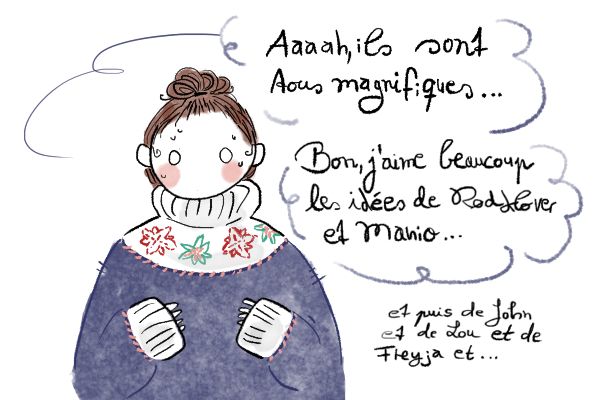 Aaaah, ils sont
tous magnifiques...
Bon, j'aime beaucoup
les idées de RedHover
et Manio...
et puis de John
et de Lou et de
Freyja et...